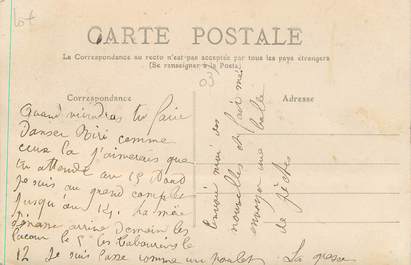 Lot
CARTE POSTALE
La Correspondance au recto n'est pas acceptée par tous les pays étrangers
(Se renseigner à la Poste)
03
Correspondance
Adresse
Quand viendras tu faire
danser Riri comme
ceux là j'aimerais que
tu attende au 15 Août
je suis au grand complet
jusqu'au 14. La
arrive Demain les
le 5 les
12 Je suis lasse comme un poulet. La
Envoie moi des
nouvelles
envoyer une belle
de pêche